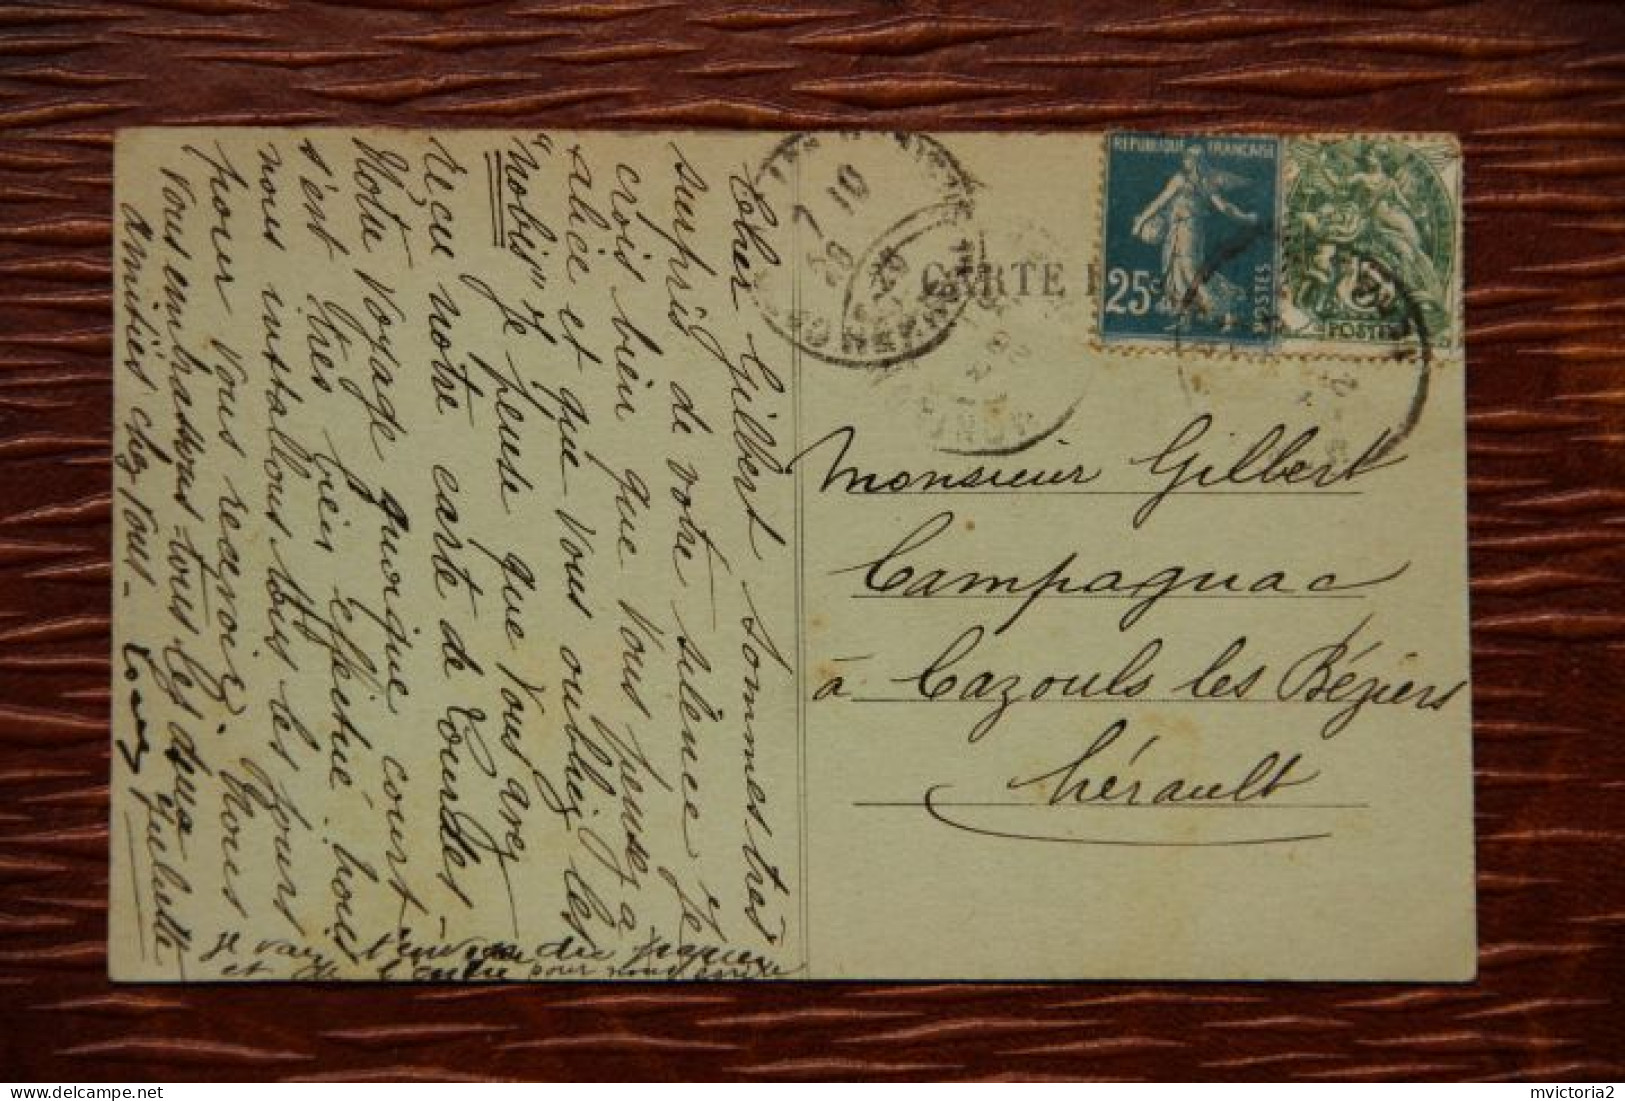 Cher Gilbert Sommes très
surpris de votre silence Je
crois bien que vous pensez à
alice et que vous oubliez les
"nobis" Je pense que vous avez
reçu notre carte de Lourdes -
Notre voyage quoique court
s'est très bien effectué. Nous
nous installons tous les jours
pour vous recevoir. Nous
vous embrassons tous les deux
amitiés chez vous -
Juliette
Je vais
et
pour nous
CARTE P
RÉPUBLIQUE FRANÇAISE
25c
POSTES
5
POSTES
7
10
29
HERAULT
Monsieur Gilbert
Campagnac
à Cazouls les Béziers
Hérault
mvictoria2